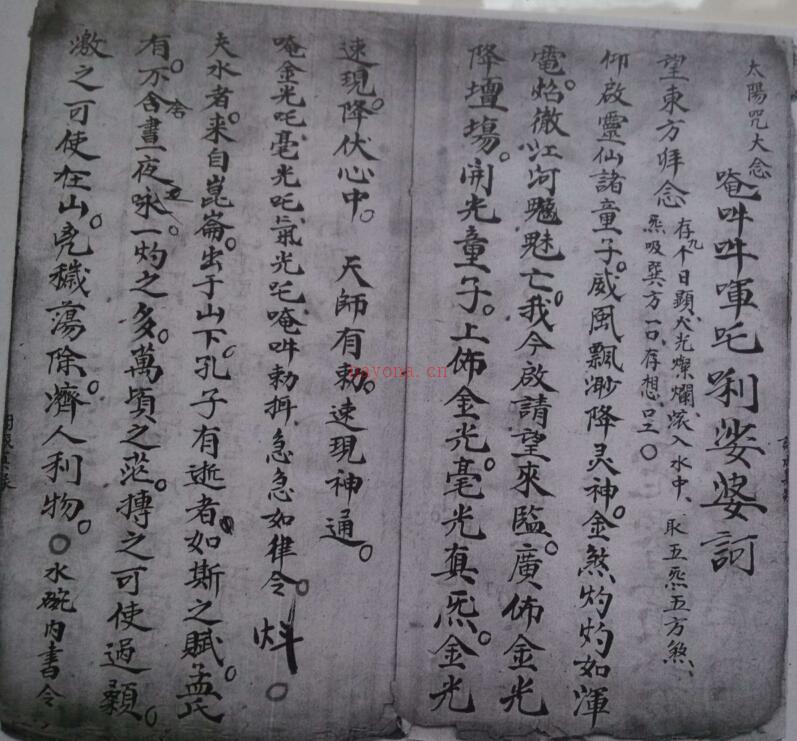 太陽咒大念
唵吽吽㖞吒唎娑婆訶
望東方拜念 存九个日顯大光燦爛滚入水中、取五炁五方煞、
炁吸巽方一口、存想、
仰啟靈仙諸童子。威風飄渺降灵神。金煞灼灼如渾
電。焰徹江河魍魅亡。我今啟請望來臨。廣佈金光
降壇場。開光童子。上佈金光毫光真炁。金光
速現。降伏心中。 天師有勅。速現神通。
唵金光吒。毫光吒。氣光吒。唵吽勅、急急如律令。
夫水者。來自崑崙。出于山下。孔子有逝者如斯之賦。孟氏
有不舍晝夜咏。一灼之多。萬頃之茫。搏之可使過顙。
激之可使在山。穢蕩除。濟人利物。水碗内書令
payona.cn